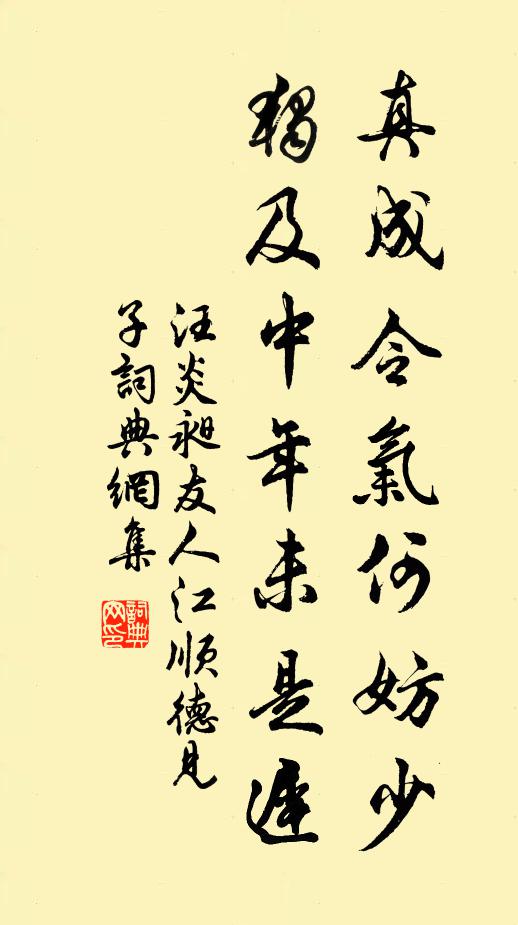 真成令氣何妨少
獨及中年未是遲
汪炎昶友人江順德見
子詞典網集
詞典
网印